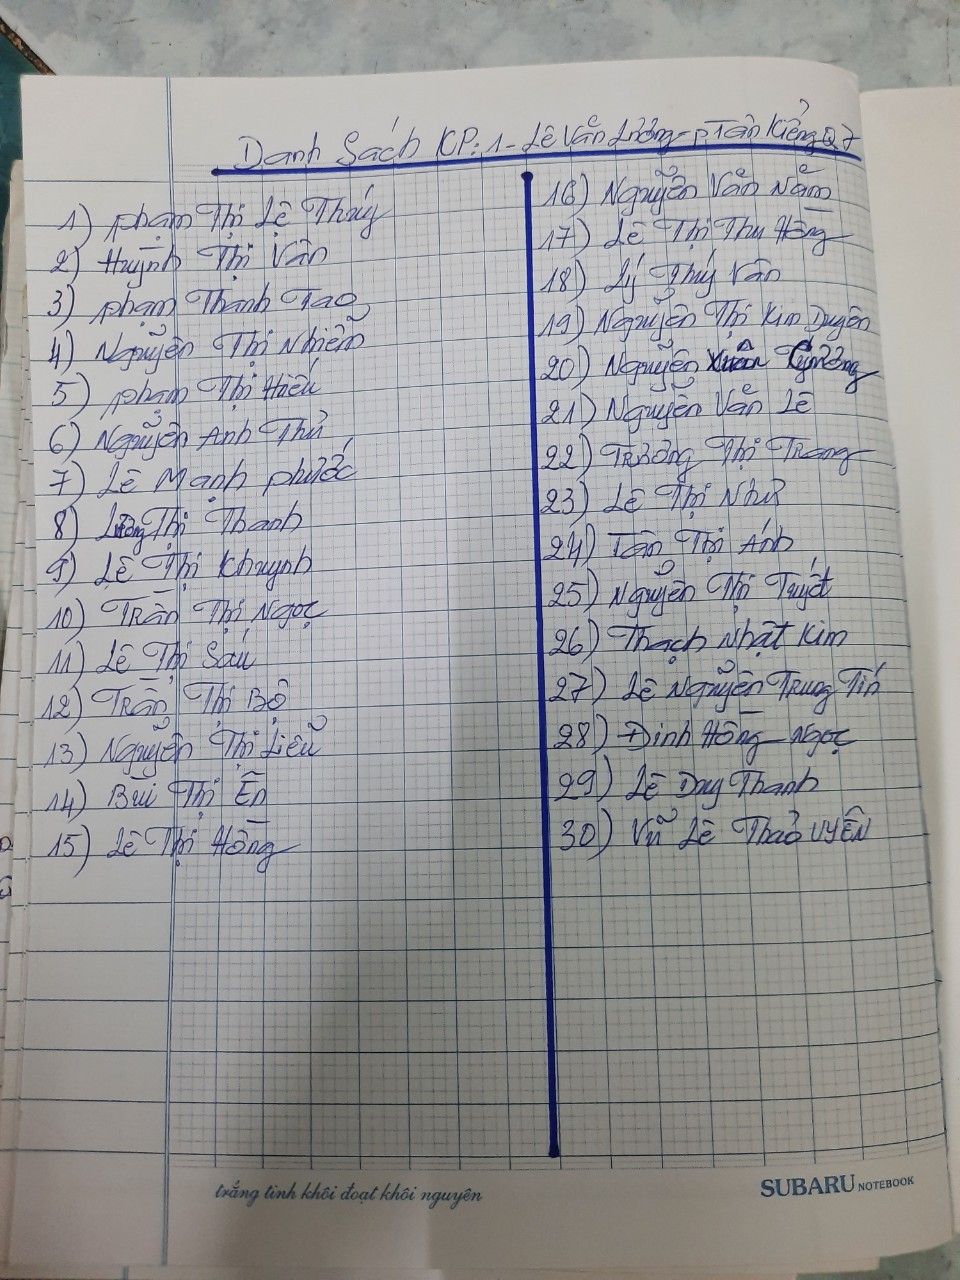 Danh Sách KP: 1 - Lê Văn Lương - P Tân Kiểng Q7
1) Phạm Thị Lệ Thúy
2) Huỳnh Thị Vân
3) Phạm Thanh Tao
4) Nguyễn Thị Nhiễm
5) Phạm Thị Hiếu
6) Nguyễn Anh Thử
7) Lê Mạnh Phước
8) Lương Thị Thanh
9) Lê Thị Khuynh
10) Trần Thị Ngọc
11) Lê Thị Sáu
12) Trần Thị Bô
13) Nguyễn Thị Liễu
14) Bùi Thị Ến
15) Lê Thị Hồng
16) Nguyễn Văn Năm
17) Lê Thị Thu Hồng
18) Lý Thúy Vân
19) Nguyễn Thị Kim Duyên
20) Nguyễn Xuân Cường
21) Nguyễn Văn Lê
22) Trương Thị Trang
23) Lê Thị Như
24) Tân Thị Ánh
25) Nguyễn Thị Tuyết
26) Thạch Nhật Kim
27) Lê Nguyễn Trung Tín
28) Đinh Hồng Ngọc
29) Lê Duy Thanh
30) Vũ Lê Thảo UYÊN
trắng tinh khôi đoạt khôi nguyên
SUBARU NOTEBOOK